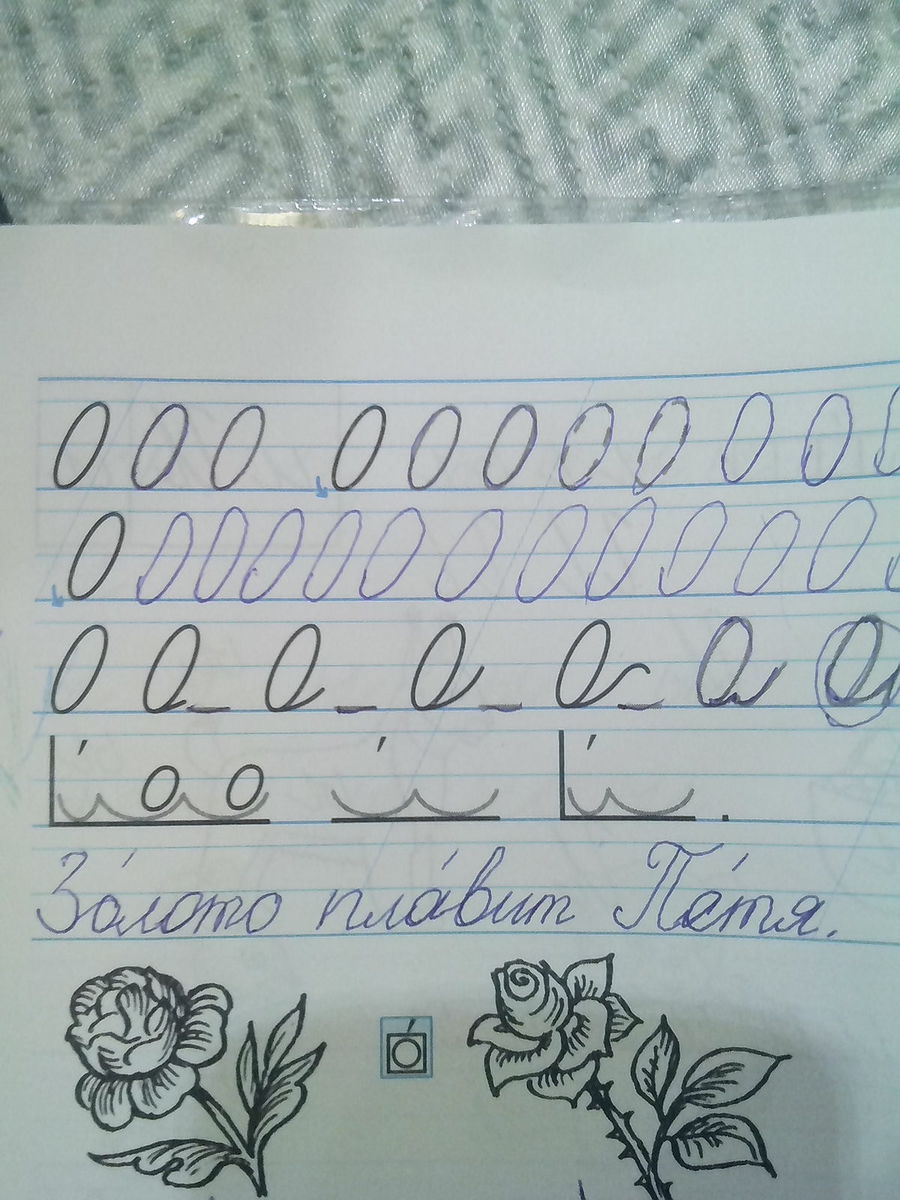 О О О О О О О О О О
О О О О О О О О О О О О
О О О О О О О
о о .
Зо́лото пла́вит Пе́тя.
о́